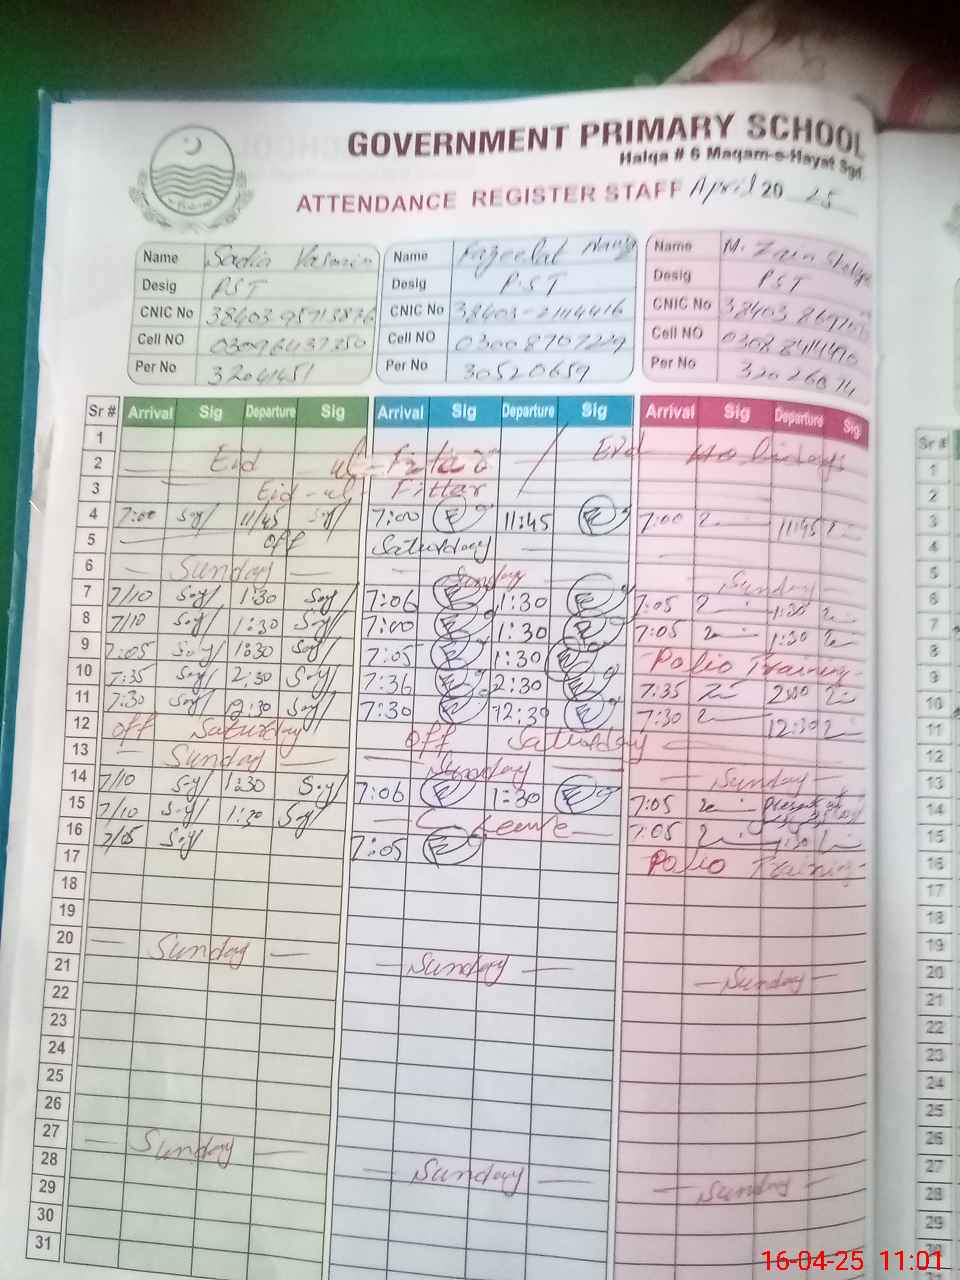 GOVERNMENT PRIMARY SCHOOL
Halqa # 6 Maqam-e-Hayat Sgd.
ATTENDANCE REGISTER STAFF April 2025
Name Sadia Yasmin Name Fazeelat Name M. Zain
Desig PST Desig PST Desig PST
CNIC No CNIC No 38403-2114416 CNIC No
Cell NO 03096437250 Cell NO 03008707229 Cell NO
Per No Per No 30520659 Per No
Sr # Arrival Sig Departure Sig Arrival Sig Departure Sig Arrival Sig Departure Sig Sr #
1
2 Eid ul-Fitar / Eid Holidays 1
3 Eid-ul Fittar 2
4 7:00 11/45 7:00 11:45 7:00 11:45 3
5 off Saturday 4
6 Sunday Sunday Sunday 5
7 7/10 1:30 7:06 1:30 7:05 1:30 6
8 7/10 1:30 7:00 1:30 7:05 1:30 7
9 7:05 1:30 7:05 1:30 Polio Training 8
10 7:35 2:30 7:36 2:30 7:35 9
11 7:30 7:30 12:30 7:30 12:30 10
12 off Saturday off Saturday 11
13 Sunday Sunday Sunday 12
14 7/10 1:30 7:06 1:30 7:05 13
15 7/10 1:30 Leave 7:05 1:30 14
16 7/05 7:05 Polio Training 15
17 16
18 17
19 18
20 Sunday Sunday Sunday 19
21 20
22 21
23 22
24 23
25 24
26 25
27 Sunday Sunday Sunday 26
28 27
29 28
30 29
31
16-04-25 11:01